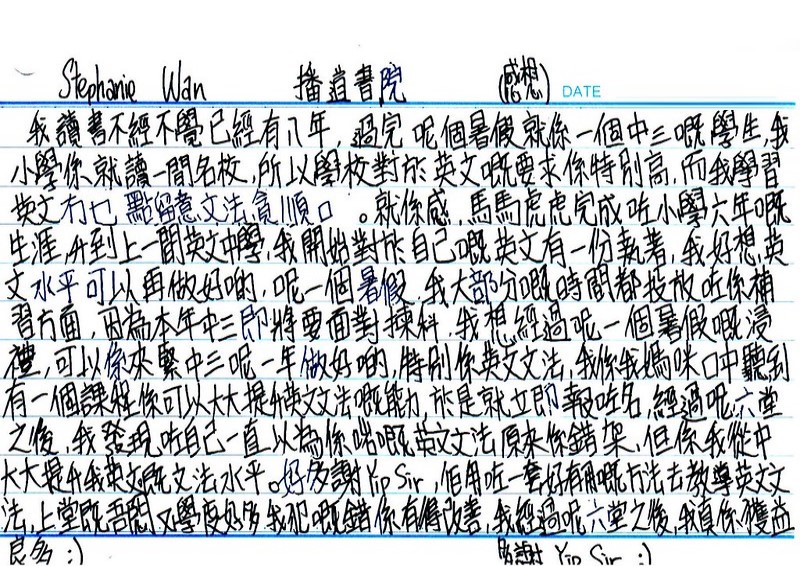 Stephanie Wan 播道書院 (感想) DATE
我讀書不經不覺已經有八年，過完呢個暑假就係一個中三嘅學生，我
小學係就讀一間名校，所以學校對於英文嘅要求係特別高，而我學習
英文冇乜點留意文法，貪順口。就係咁，馬馬虎虎完成咗小學六年嘅
生涯，升到上一間英文中學，我開始對於自己嘅英文有一份執著，我好想英
文水平可以再做好啲，呢一個暑假，我大部分嘅時間都投放咗係補
習方面，因為本年中三即將要面對揀科，我想經過呢一個暑假嘅浸
禮，可以係來緊中三呢一年做好啲，特別係英文文法，我係我媽咪口中聽到
有一個課程係可以大大提升英文法嘅能力，於是就立即報咗名，經過呢六堂
之後，我發現咗自己一直以為係啱嘅英文文法原來係錯架，但係我從中
大大提升我英文既文法水平。好多謝Yip Sir，佢用咗一套好有用嘅方法去教導英文文
法，上堂既唔悶又學度好多，我犯嘅錯係有得改善，我經過呢六堂之後，我真係獲益
良多 :) 多謝 Yip Sir :)